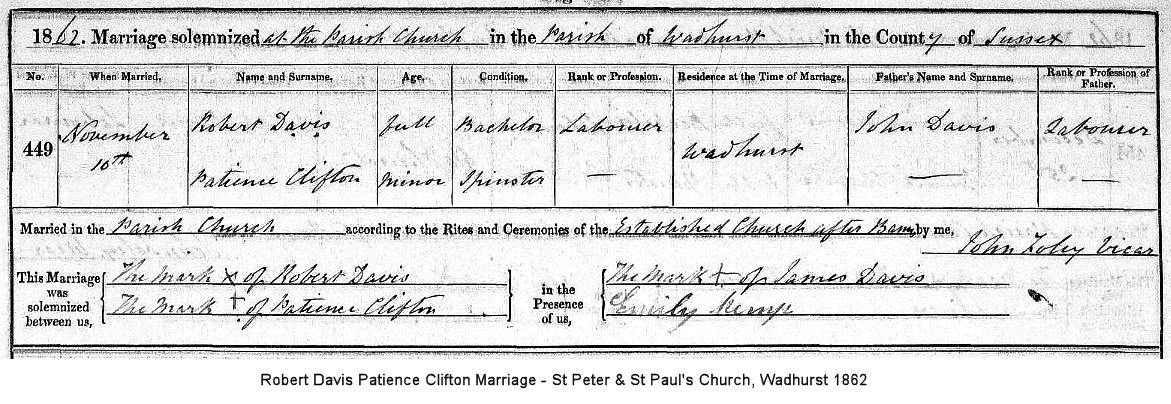 1862. Marriage solemnized at the Parish Church in the Parish of Wadhurst in the County of Sussex
No. When Married. Name and Surname. Age. Condition. Rank or Profession. Residence at the Time of Marriage. Father's Name and Surname. Rank or Profession of Father.
449 November 10th Robert Davis full Bachelor Labourer Wadhurst John Davis Labourer
Patience Clifton minor Spinster — — —
Married in the Parish Church according to the Rites and Ceremonies of the Established Church after Banns by me,
John Foley Vicar
This Marriage was solemnized between us, The Mark x of Robert Davis in the Presence of us, The Mark + of James Davis
The Mark + of Patience Clifton Emily Kemp
Robert Davis Patience Clifton Marriage - St Peter & St Paul's Church, Wadhurst 1862